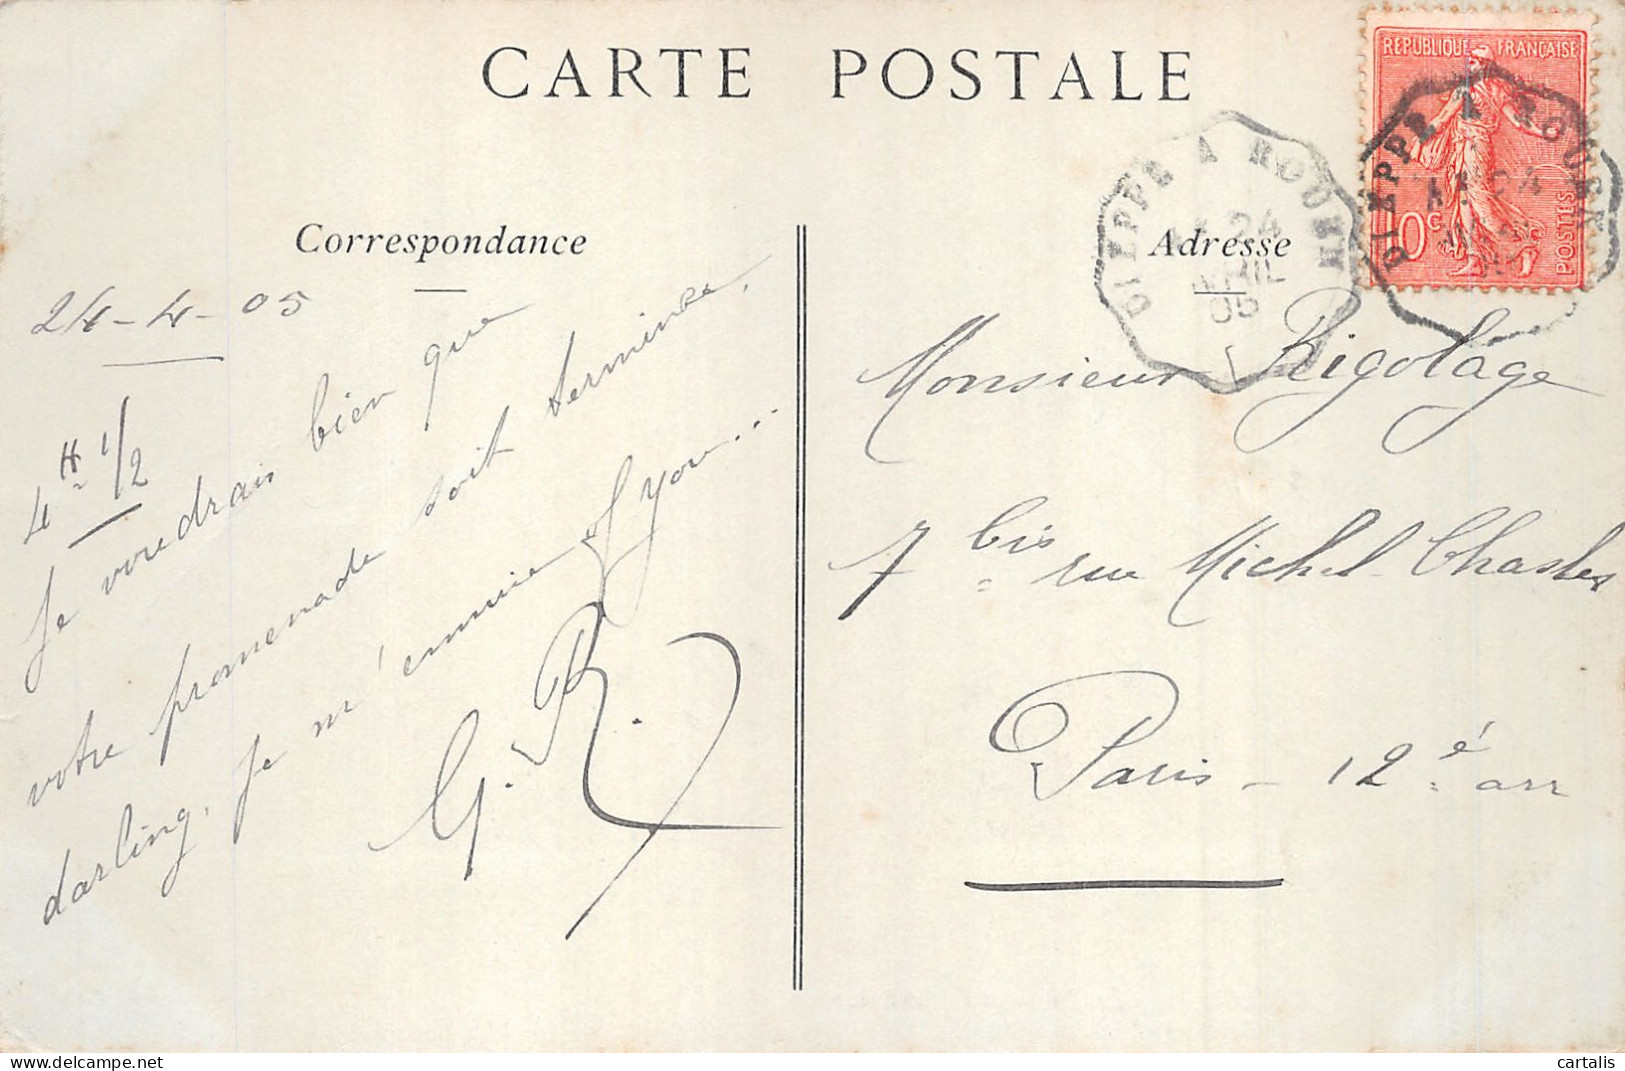 CARTE POSTALE
Correspondance
24-4-05
4H 1/2
Je voudrais bien que
votre promenade soit terminée,
darling, je m'ennuie of you...
G. R.
Adresse
Monsieur Rigolage
7 bis rue Michel Chasles
Paris - 12é arr
REPUBLIQUE FRANÇAISE
10c
POSTES
DIEPPE A ROUEN
24
AVRIL
05
DIEPPE A ROUEN
24
cartalis